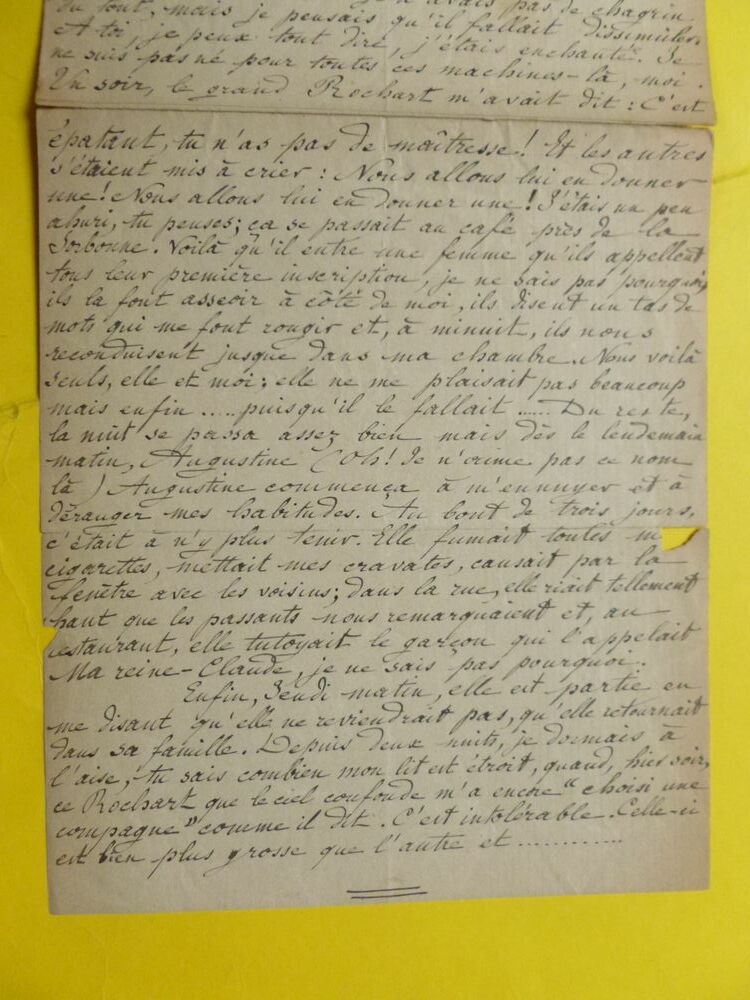 du tout, mais je pensais qu'il fallait dissimuler.
A toi, je peux tout dire, j'étais enchanté. Je
ne suis pas né pour toutes ces machines-là, moi.
Un soir, le grand Rochart m'avait dit : C'est
épatant, tu n'as pas de maîtresse! Et les autres
s'étaient mis à crier : Nous allons lui en donner
une! Nous allons lui en donner une! J'étais un peu
ahuri, tu penses; ça se passait au café près de la
Sorbonne. Voilà qu'il entre une femme qu'ils appellent
tous leur première inscription, je ne sais pas pourquoi,
ils la font asseoir à côté de moi, ils disent un tas de
mots qui me font rougir et, à minuit, ils nous
reconduisent jusque dans ma chambre. Nous voilà
seuls, elle et moi; elle ne me plaisait pas beaucoup
mais enfin ..... puisqu'il le fallait ...... Du reste,
la nuit se passa assez bien mais dès le lendemain
matin, Augustine (Oh! Je n'aime pas ce nom
là) Augustine commença à m'ennuyer et à
déranger mes habitudes. Au bout de trois jours,
c'était à n'y plus tenir. Elle fumait toutes m
cigarettes, mettait mes cravates, causait par la
fenêtre avec les voisins; dans la rue, elle riait tellement
haut que les passants nous remarquaient et, au
restaurant, elle tutoyait le garçon qui l'appelait
Ma reine-Claude, je ne sais pas pourquoi.
Enfin, Jeudi matin, elle est partie en
me disant qu'elle ne reviendrait pas, qu'elle retournait
dans sa famille. Depuis deux nuits, je dormais à
l'aise, tu sais combien mon lit est étroit, quand, hier soir,
ce Rochart que le ciel confonde m'a encore "choisi une
compagne" comme il dit. C'est intolérable. Celle-ci
est bien plus grosse que l'autre et ............